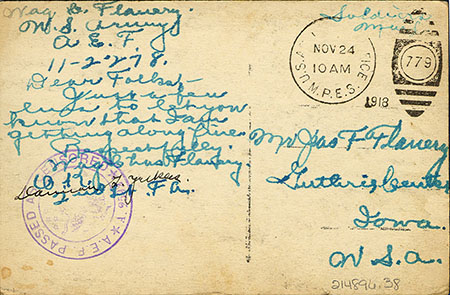 Wag C. Flanery.
U.S. Army
A.E.F.
11-22-78.
Dear Folks,-
Just a few
lines to let you
know that I am
getting along fine.
Respectfully.
Flanery
Co.
Soldiers
Mail
NOV 24
10 AM
1918
U.S.
M.P.E.S.
779
PASSED AS CENSORED
A.E.F.
Mr Jas F Flanery
Guthrie Center
Iowa.
U.S.A.
214896.38